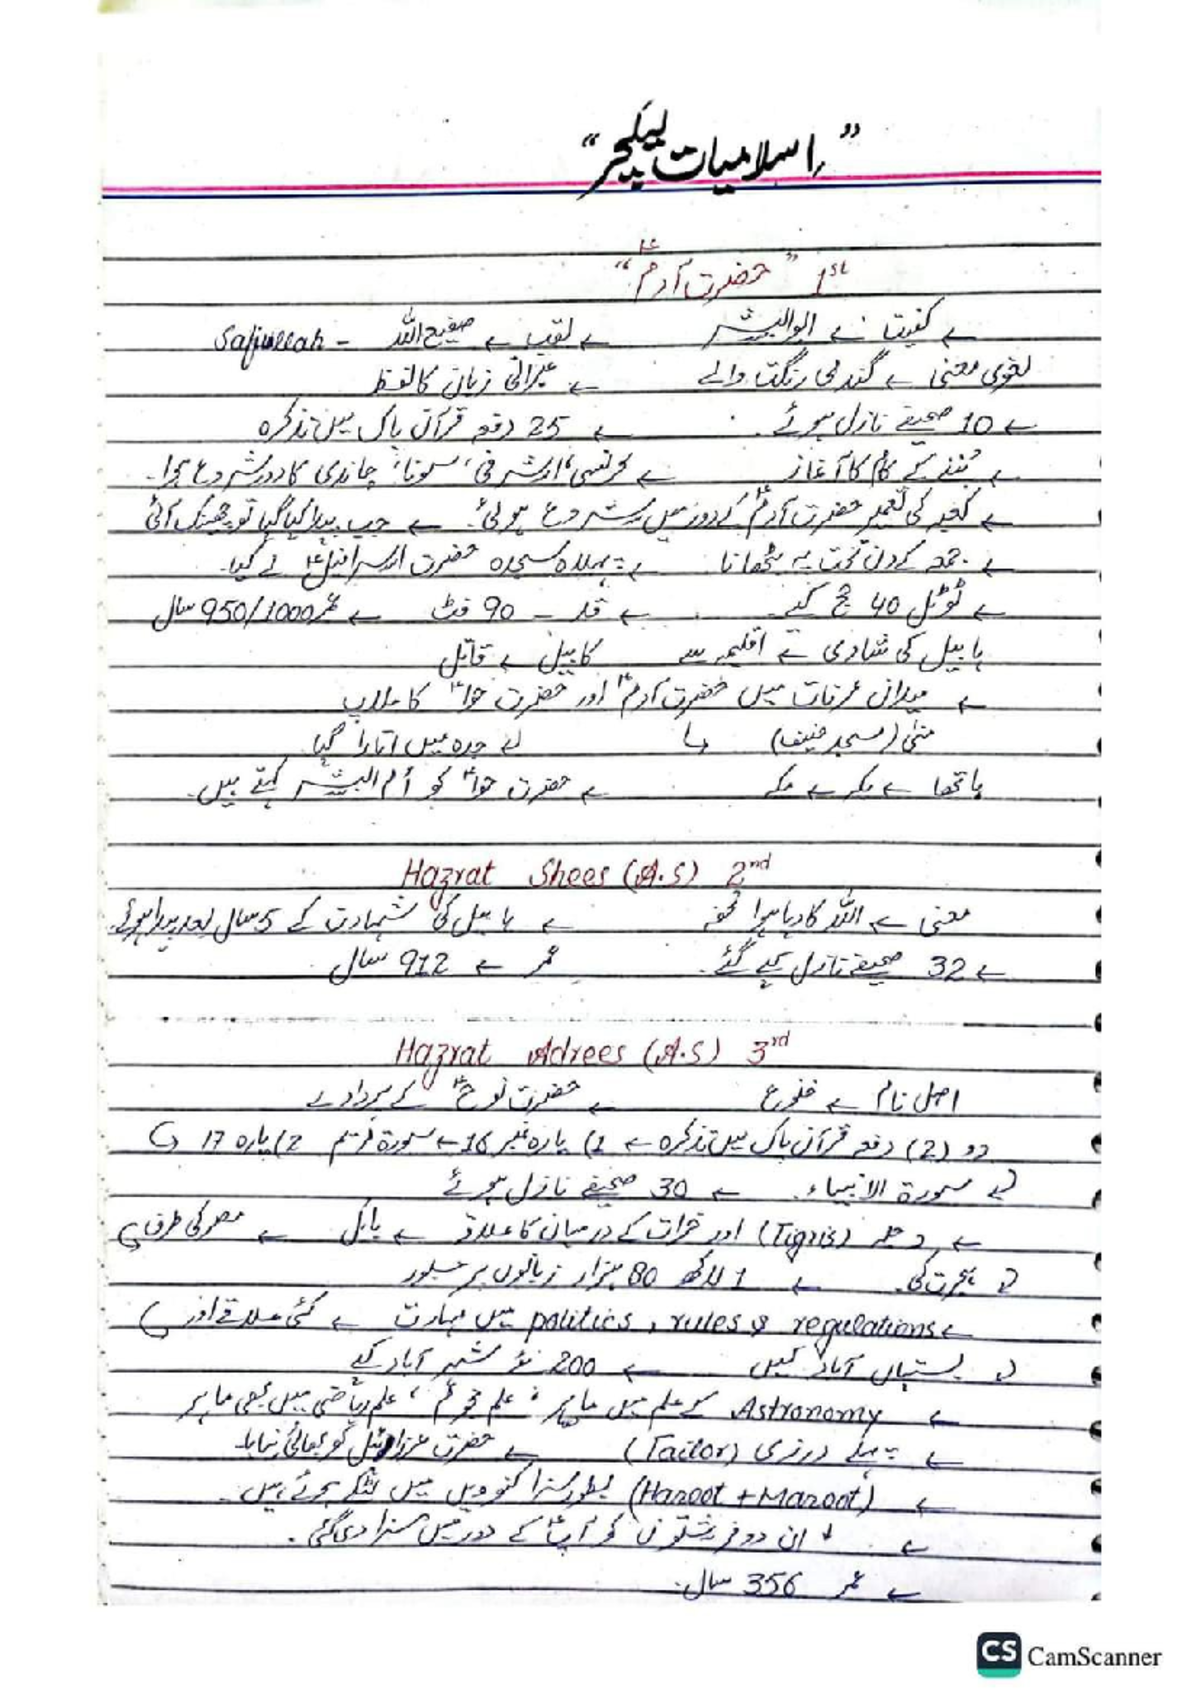 "اسلامیات لیکچر"
1st "حضرت آدمؑ"
← کنیت ← ابوالبشر ← لقب ← صفیح اللہ - Safiullah
لغوی معنی ← گندمی رنگت والے ← عبرانی زبان کا لفظ
← 10 صحیفے نازل ہوئے۔ ← 25 دفعہ قرآن پاک میں تذکرہ
← بُننے کے کام کا آغاز ← کرنسی، اشرفی، سونا، چاندی کا دور شروع ہوا۔
← کعبہ کی تعمیر حضرت آدمؑ کے دور میں شروع ہوئی۔ ← جب پیدا کیا گیا تو چھینک آئی
← جمعہ کے دن تخت پہ بٹھانا ← پہلا سجدہ حضرت اسرافیلؑ نے کیا۔
← ٹوٹل 40 حج کیے ← قد - 90 فٹ ← عمر 950/1000 سال
ہابیل کی شادی ← اقلیمہ سے کابیل ← قاتل
← میدان عرفات میں حضرت آدمؑ اور حضرت حواؑ کا ملاپ
منیٰ (مسجد خیف) ↳ جدہ میں اتارا گیا
← مکہ ← حضرت حواؑ کو اُم البشر کہتے ہیں۔
Hazrat Shees (A.S) 2nd
معنی ← اللہ کا دیا ہوا تحفہ ← ہابیل کی شہادت کے 5 سال بعد پیدا ہوئے۔
← 32 صحیفے نازل کیے گئے۔ عمر ← 912 سال
Hazrat Adrees (A.S) 3rd
اصل نام ← خنوع ← حضرت نوحؑ کے پردادے
دو (2) دفعہ قرآن پاک میں تذکرہ ← 1) پارہ نمبر 16 ← سورۃ مریم 2) پارہ 17
سورۃ الانبیاء۔ ← 30 صحیفے نازل ہوئے
← دجلہ (Tigris) اور فرات کے درمیان کا علاقہ ← بابل ← مصر کی طرف
ہجرت کی۔ ← 1 لاکھ 80 ہزار زبانوں پر عبور
← politics, rules & regulations میں مہارت ← کئی علاقے اور
بستیاں آباد کیں ← 200 نئے شہر آباد کیے
← Astronomy کے علم میں ماہر، علم نجوم، علم ریاضی میں بھی ماہر
← پہلے درزی (Tailor) ← حضرت عزرائیل کو بھائی بنایا۔
← (Haroot + Maroot) بطور سزا کنویں میں لٹکے ہوئے ہیں۔
← ↓ ان دو فرشتوں کو آپؑ کے دور میں سزا دی گئی۔
← عمر 356 سال۔
CS CamScanner